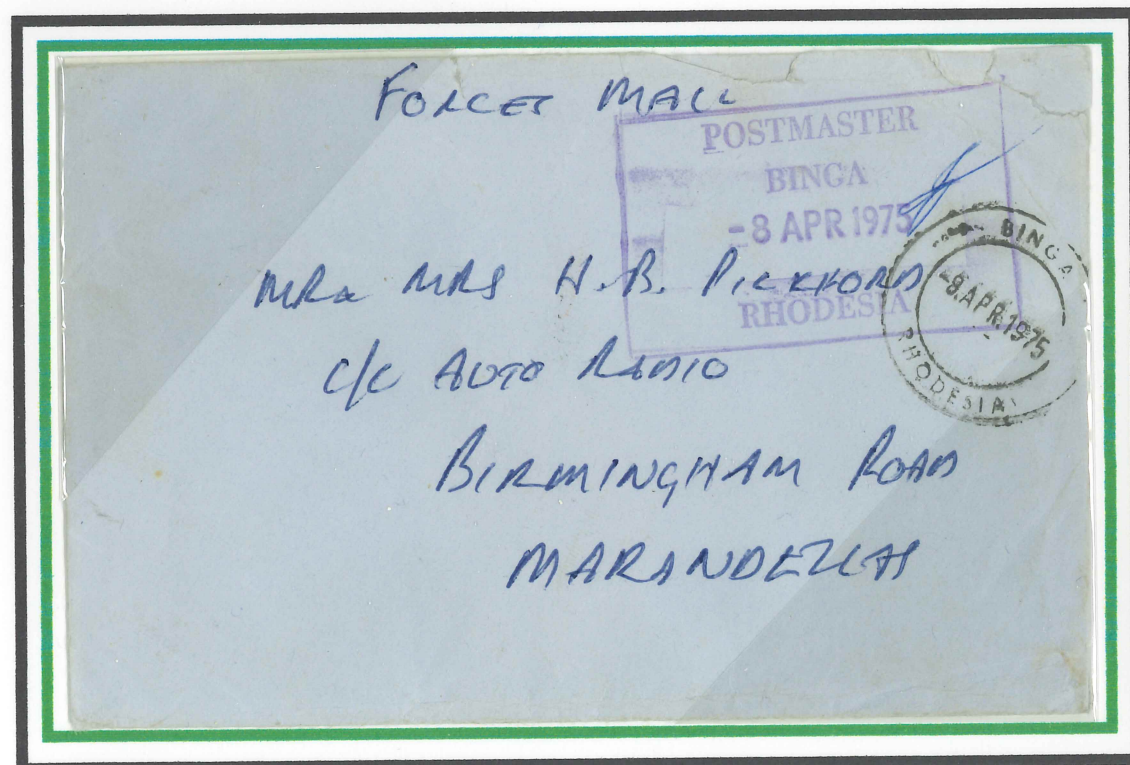 FORCES MAIL
POSTMASTER
BINGA
-8 APR 1975
RHODESIA
BINGA
-8.APR.1975
RHODESIA
MR & MRS H.B. PICKFORD
c/o AUTO RADIO
BIRMINGHAM ROAD
MARANDELLAS